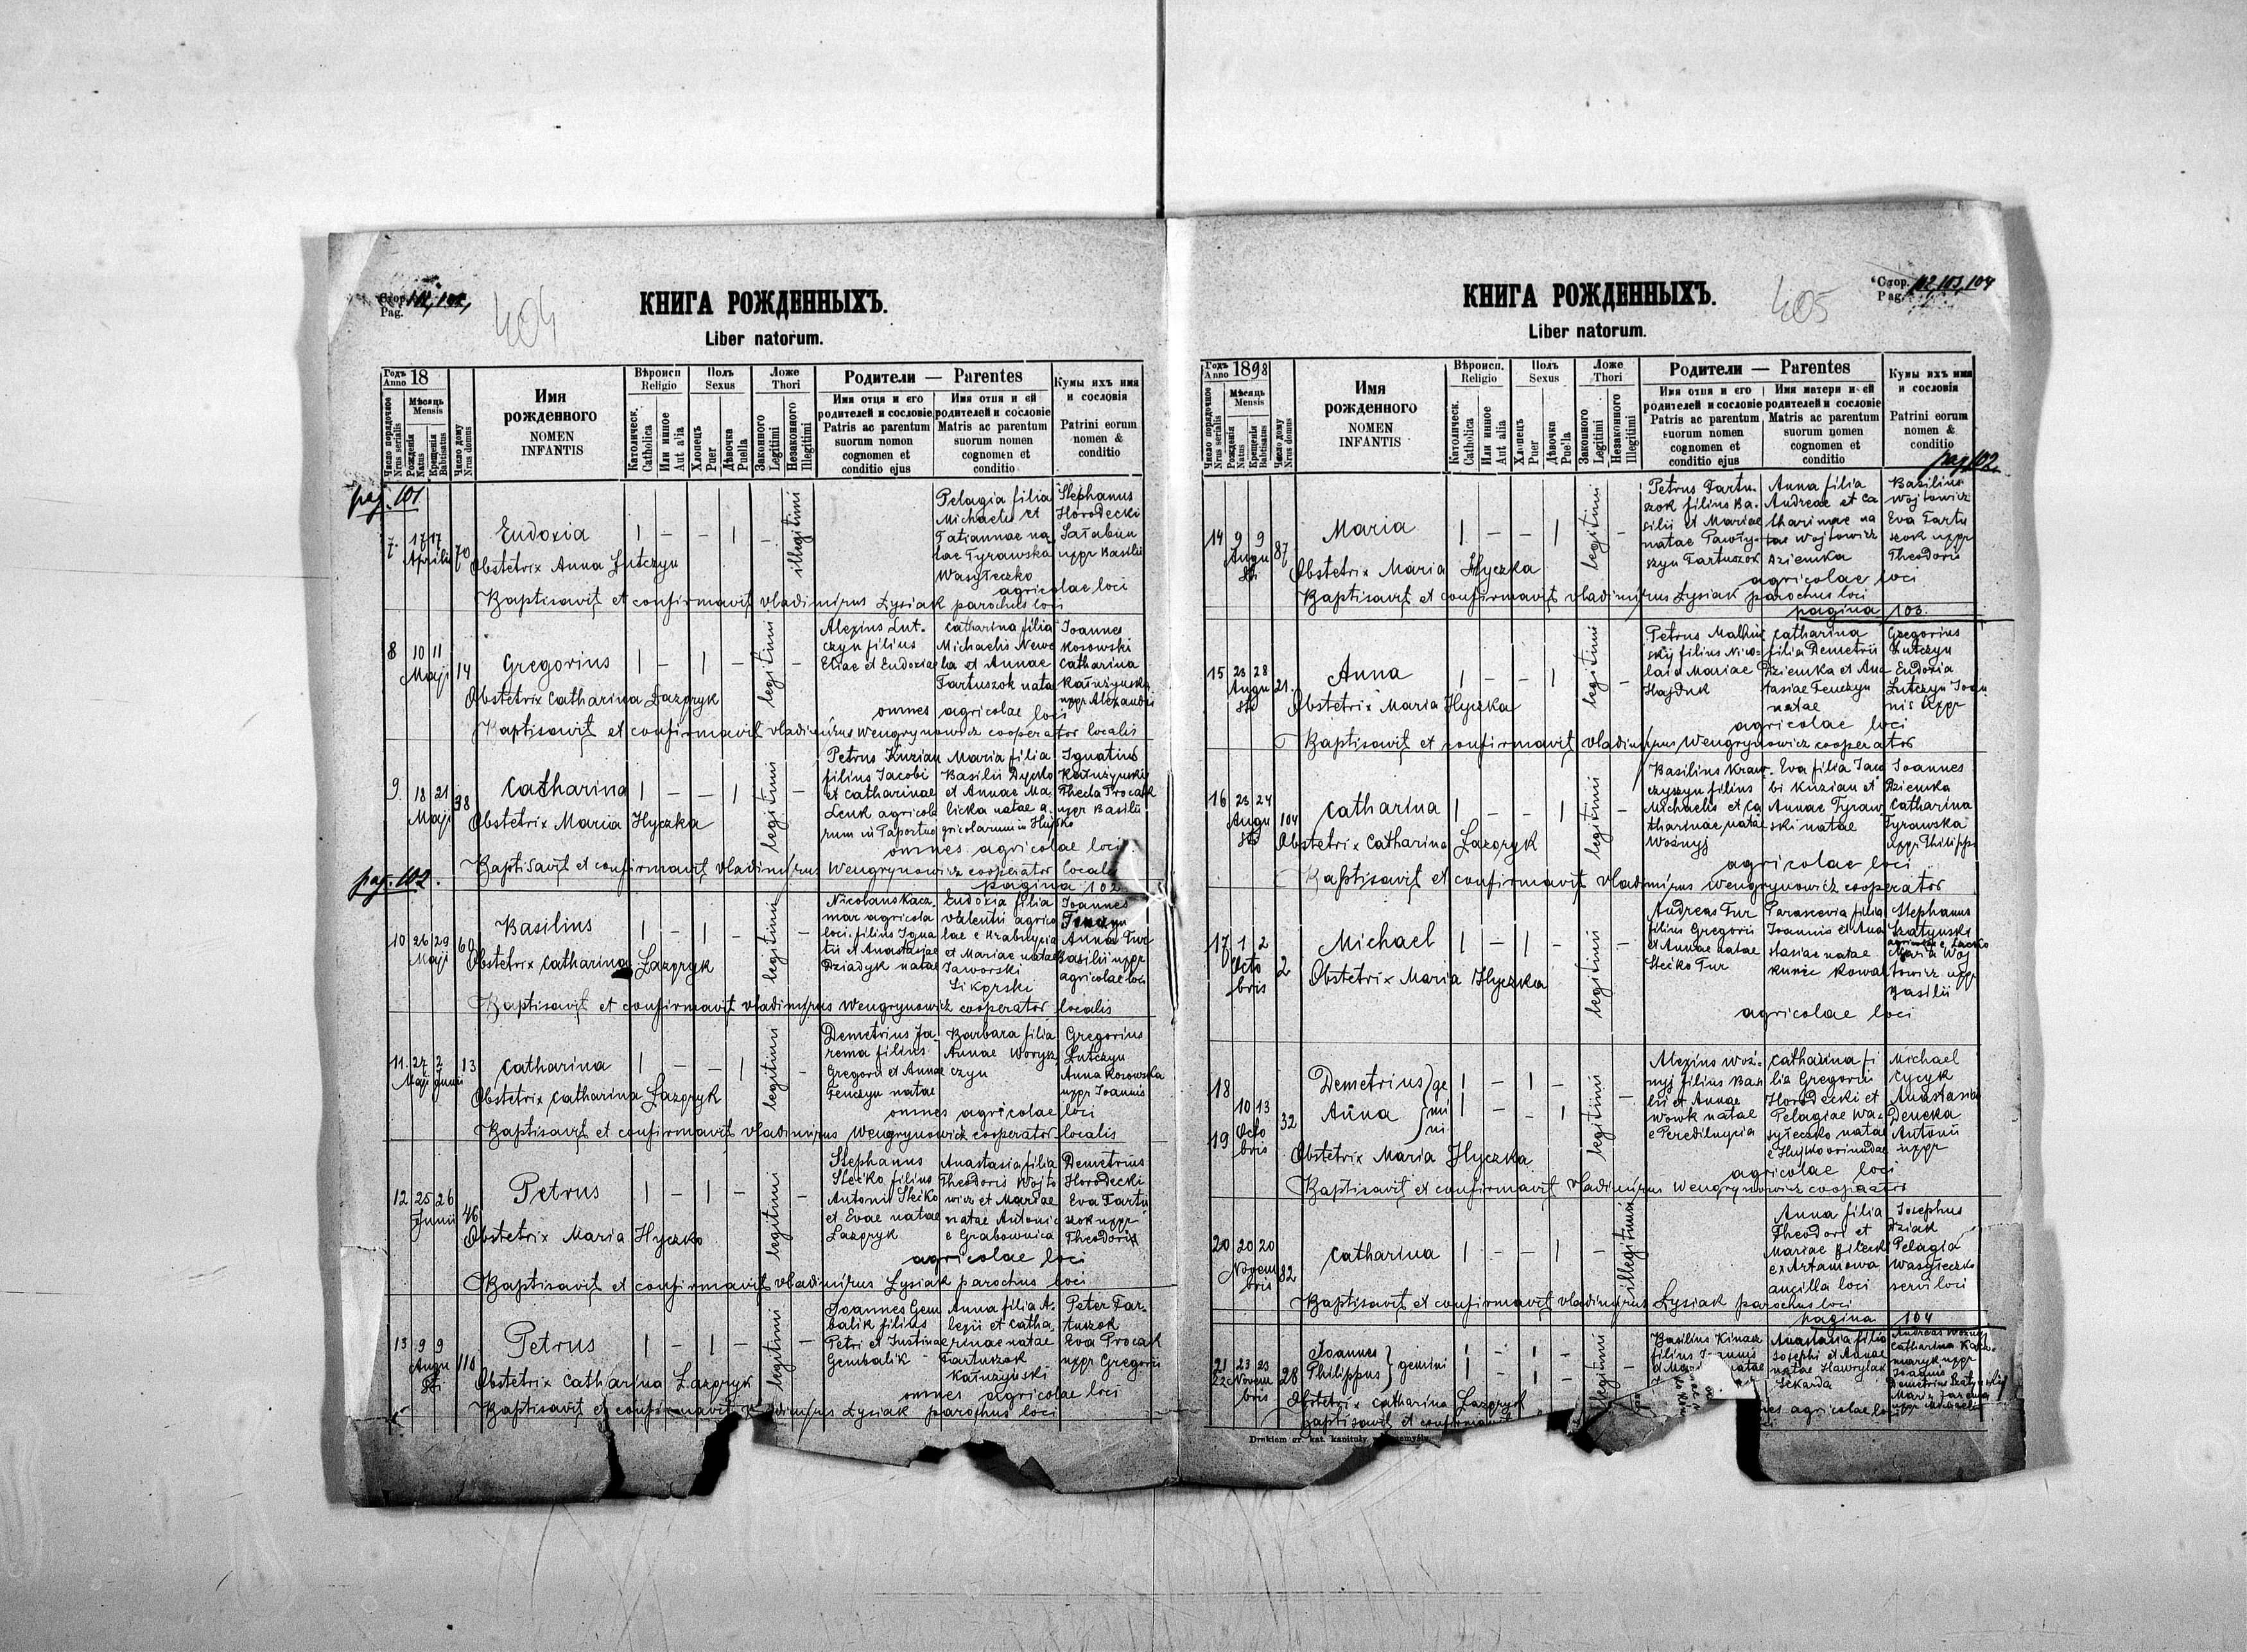 Стор.
Pag.
404
КНИГА РОЖДЕННЫХЪ.
Liber natorum.
Годъ
Anno 18
Мѣсяць
Mensis
Число порядочное
Nrus serialis
Рождення
Natus
Крещенія
Babtisatus
Число дому
Nrus domus
Имя
рожденного
NOMEN
INFANTIS
Вѣроисп
Religio
Католическ.
Catholica
Или инное
Aut alia
Полъ
Sexus
Хлопець
Puer
Дѣвочка
Puella
Ложе
Thori
Законного
Legitimi
Незаконного
Illegitimi
Родители — Parentes
Имя отца и его
родителей и сословіе
Patris ac parentum
suorum nomen
cognomen et
conditio ejus
Имя отца и ей
родителей и сословіе
Matris ac parentum
suorum nomen
cognomen et
conditio
Кумы ихъ имя
и сословія
Patrini eorum
nomen &
conditio
pag. 101
7 17 17 Aprilis 70
Eudoxia
1 — — 1 —
illegitimi
Pelagia filia
Michaelis et
Tatiannae na
tae Tyrawska
Wasyłeczko
Stephanus
Horodecki
uxor Basilii
Obstetrix Anna Łutczyn
agricolae loci
Baptisavit et confirmavit Vladimirus Łysiak parochus loci
8 10 11 Maji 14
Gregorius
1 — 1 —
legitimi
Alexius Łut-
czyn filius
Eliae et Eudoxiae
Catharina filia
Michaelis Newe
ha et Annae
Tartuszok nata
Joannes
Kosowski
Catharina
uxor Alexandri
Obstetrix Catharina Łazoryk
omnes agricolae loci
Baptisavit et confirmavit Vladimirus Wengrynowicz cooperator localis
9. 18 21 Maji 38
Catharina
1 — — 1
legitimi
Petrus Kuzian
filius Jacobi
et Catharinae
Lenk agricola
rum in Paportno
Maria filia
Basilii
et Annae Ma-
licka natae a-
gricolarum in Hujsko
Ignatius
Thecla Procak
uxor Basilii
Obstetrix Maria Hyczka
omnes agricolae loci
Baptisavit et confirmavit Vladimirus Wengrynowicz cooperator localis
pag. 102.
pagina 102
10 26 29 Maji
Basilius
1 — 1 —
legitimi
Nicolaus Kacz-
mar agricola
loci filius Igna
tii et Anastasiae
Dziadyk natae
Eudoxia filia
Valentii agrico
lae e
et Mariae natae
Jaworski
Sikorski
Joannes
Anna Fur
Basilii uxor
agricolae loci
Obstetrix Catharina Łazoryk
Baptisavit et confirmavit Vladimirus Wengrynowicz cooperator localis
11. 27 2 Maji Junii 13
Catharina
1 — — 1
legitimi
Demetrius Ja-
rema filius
Gregorii et Annae
Fenczyn natae
Barbara filia
Annae Worysz
czyn
Gregorius
Łutczyn
Anna Kosowska
uxor Joannis
Obstetrix Catharina Łazoryk
omnes agricolae loci
Baptisavit et confirmavit Vladimirus Wengrynowicz cooperator localis
12 25 26 Junii 46
Petrus
1 — 1 —
legitimi
Stephanus
Stećko filius
Antonii Stećko
et Evae natae
Łazoryk
Anastasia filia
Theodori Wojto
wicz et Mariae
natae Antonic
e Grabownica
Demetrius
Horodecki
Eva Tartu
szok uxor
Theodoris
Obstetrix Maria Hyczko
agricolae loci
Baptisavit et confirmavit Vladimirus Łysiak parochus loci
13 9 9 Augusti 118
Petrus
1 — 1 —
legitimi
Joannes Gem
balik filius
Petri et Justinae
Gembalik
Anna filia A-
lexii et Catha
rinae natae
Tartuszok
Kałużyński
Peter Tar-
tuszok
Eva Procak
uxor Gregorii
Obstetrix Catharina Łazoryk
omnes agricolae loci
Baptisavit et confirmavit Vladimirus Łysiak parochus loci
Стор. 102, 103, 104
Pag.
405
КНИГА РОЖДЕННЫХЪ.
Liber natorum.
Годъ
Anno 1898
Мѣсяць
Mensis
Число порядочное
Nrus serialis
Рождення
Natus
Крещенія
Babtisatus
Число дому
Nrus domus
Имя
рожденного
NOMEN
INFANTIS
Вѣроисп.
Religio
Католическ.
Catholica
Или инное
Aut alia
Полъ
Sexus
Хлопець
Puer
Дѣвочка
Puella
Ложе
Thori
Законного
Legitimi
Незаконного
Illegitimi
Родители — Parentes
Имя отця и его
родителей и сословіе
Patris ac parentum
suorum nomen
cognomen et
conditio ejus
Имя матери и ей
родителей и сословіе
Matris ac parentum
suorum nomen
cognomen et
conditio
Кумы ихъ имя
и сословія
Patrini eorum
nomen &
conditio
pag 102.
14 9 9 Augusti 87
Maria
1 — — 1
legitimi
Petrus Tartu-
szok filius Ba-
silii et Mariae
natae Pawły-
szyn Tartuszok
Anna filia
Andreae et Ca
tharinae na
tae Wojtowicz
Dziemka
Basilius
Wojtowicz
Eva Tartu
szok uxor
Theodoris
Obstetrix Maria Hyczka
agricolae loci
Baptisavit et confirmavit Vladimirus Łysiak parochus loci
pagina 103.
15 28 Augusti 21.
Anna
1 — — 1
legitimi
Petrus
filius Nico-
lai et Mariae
Hajduk
Catharina
filia Demetrii
Dziemka et Ana
tasiae Fenczyn
natae
Gregorius
Łutczyn
Eudoxia
Łutczyn Joan
nis uxor
Obstetrix Maria Hyczka
agricolae loci
Baptisavit et confirmavit Vladimirus Wengrynowicz cooperator
16 23 24 Augusti 104
Catharina
1 — — 1
legitimi
Basilius Kraw-
czyszyn filius
Michaelis et Ca
tharinae natae
Woźnyj
Eva filia Jaco
bi Kuzian et
Annae Tyraw
ski natae
Joannes
Dziemka
Catharina
Tyrawska
uxor Philippi
Obstetrix Catharina Łazoryk
agricolae loci
Baptisavit et confirmavit Vladimirus Wengrynowicz cooperator
17 1 2 Octobris 2
Michael
1 — 1 —
legitimi
Andreas Fur
filius Gregorii
et Annae natae
Stećko Fur
Parascevia filia
Joannis et Ana
stasiae natae
Kunic Kowal
Stephanus
Szatynski
Maria Woj
towicz uxor
Basilii
Obstetrix Maria Hyczka
agricolae loci
18
19
10 13 Octobris 32
Demetrius
Anna
gemini
1 — 1 —
1 — — 1
legitimi
Alexius Woź-
nyj filius Basi
lii et Annae
Wowk natae
e Peredilnycia
Catharina fi
lia Gregorii
Horodecki et
Pelagiae Wa-
syłeczko natae
e Hujsko oriundae
Michael
Cycyk
Anastasia
Deneka
Antonii
uxor
Obstetrix Maria Hyczka
agricolae loci
Baptisavit et confirmavit Vladimirus Wengrynowicz cooperator
20 20 20 Novembris 82
Catharina
1 — — 1 —
illegitimi
Anna filia
Theodori et
Mariae
ex Artamowa
ancilla loci
Josephus
Dziak
Pelagia
Wasyłeczko
servi loci
Baptisavit et confirmavit Vladimirus Łysiak parochus loci
pagina 104
21
22
23 23 Novembris 28
Joannes
Philippus
gemini
1 — 1 —
1 — 1 —
legitimi
Basilius Kinasz
filius
natae
Anastasia filia
Josephi et Annae
natae Hawrylak
Sekarda
Andreas Woźnyj
Catharina
uxor
Joannis
Demetrius
Maria Jarema
uxor Michaelis
Obstetrix Catharina Łazoryk
agricolae loci
Baptisavit et confirmavit
Drukiem gr. kat. kapituły